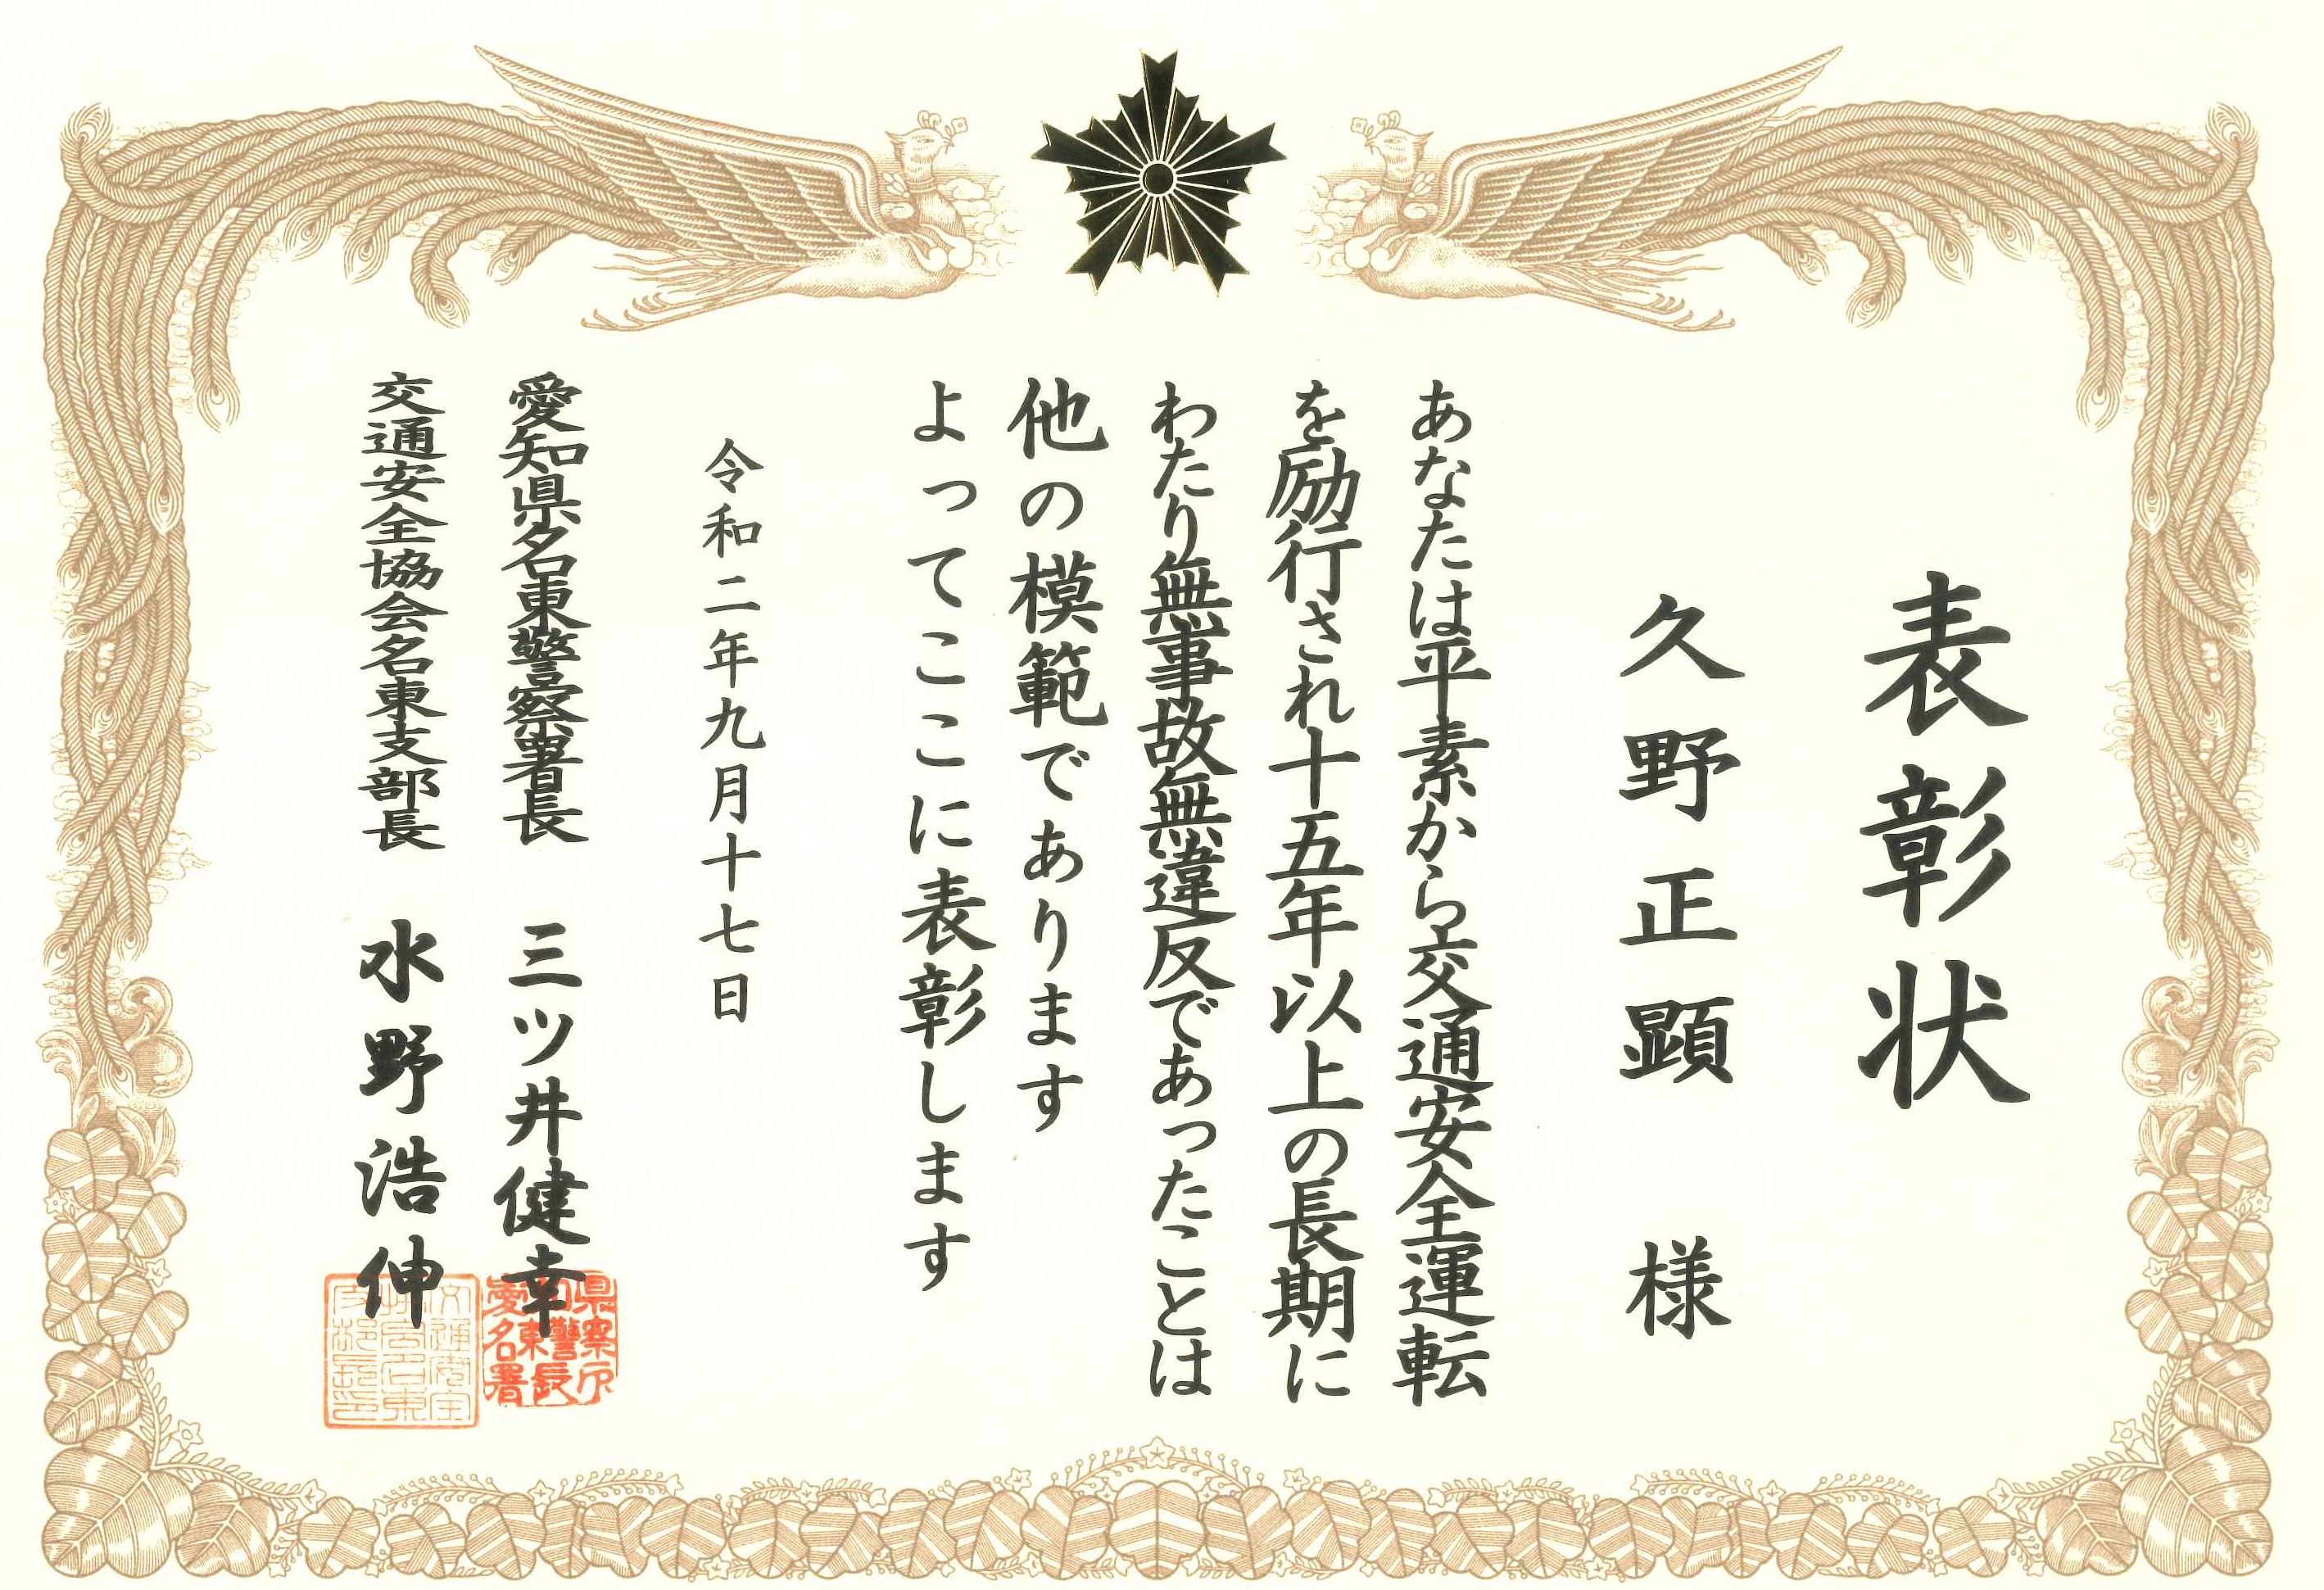 表彰状
久野正顕 様
あなたは平素から交通安全運転
を励行され十五年以上の長期に
わたり無事故無違反であったことは
他の模範であります
よってここに表彰します
令和二年九月十七日
愛知県名東警察署長 三ツ井健幸
交通安全協会名東支部長 水野浩伸